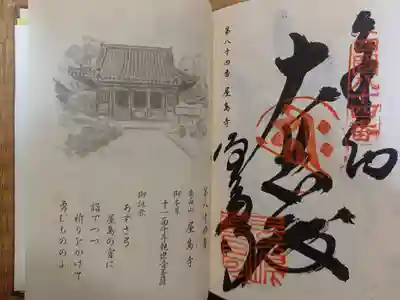 大悲殿
屋島寺
第八十四番 屋島寺
第八十四番
南面山 屋島寺
御本尊
十一面千手観世音菩薩
御詠歌
あずさ弓
屋島の宮に
詣でつつ
祈りをかけて
勇むもののふ